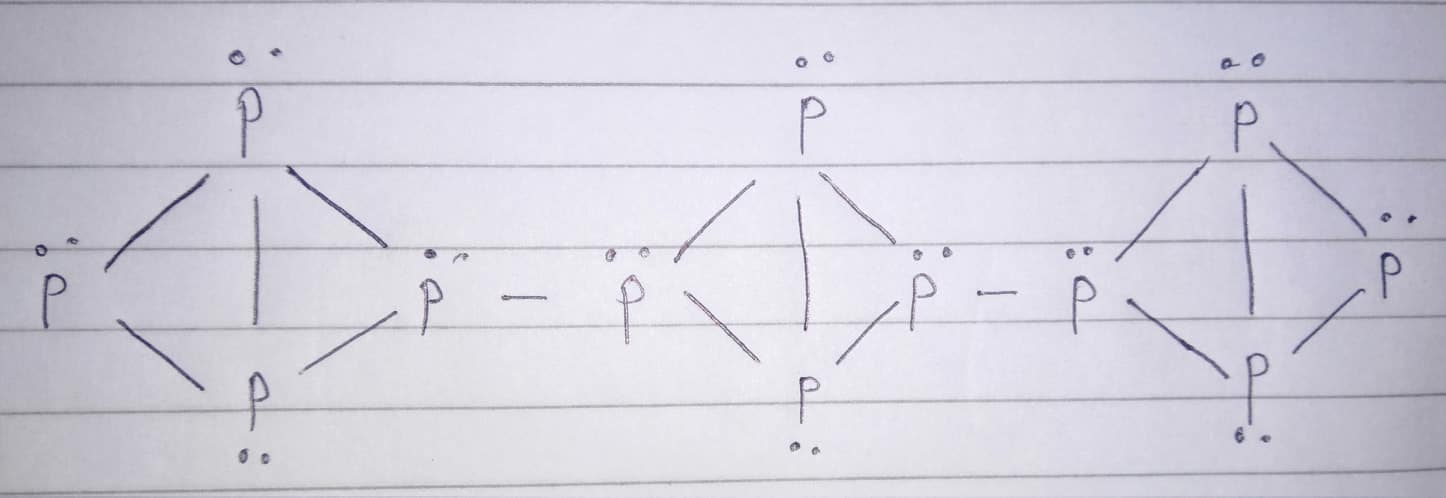 P P P
P P – P P – P P
P P P